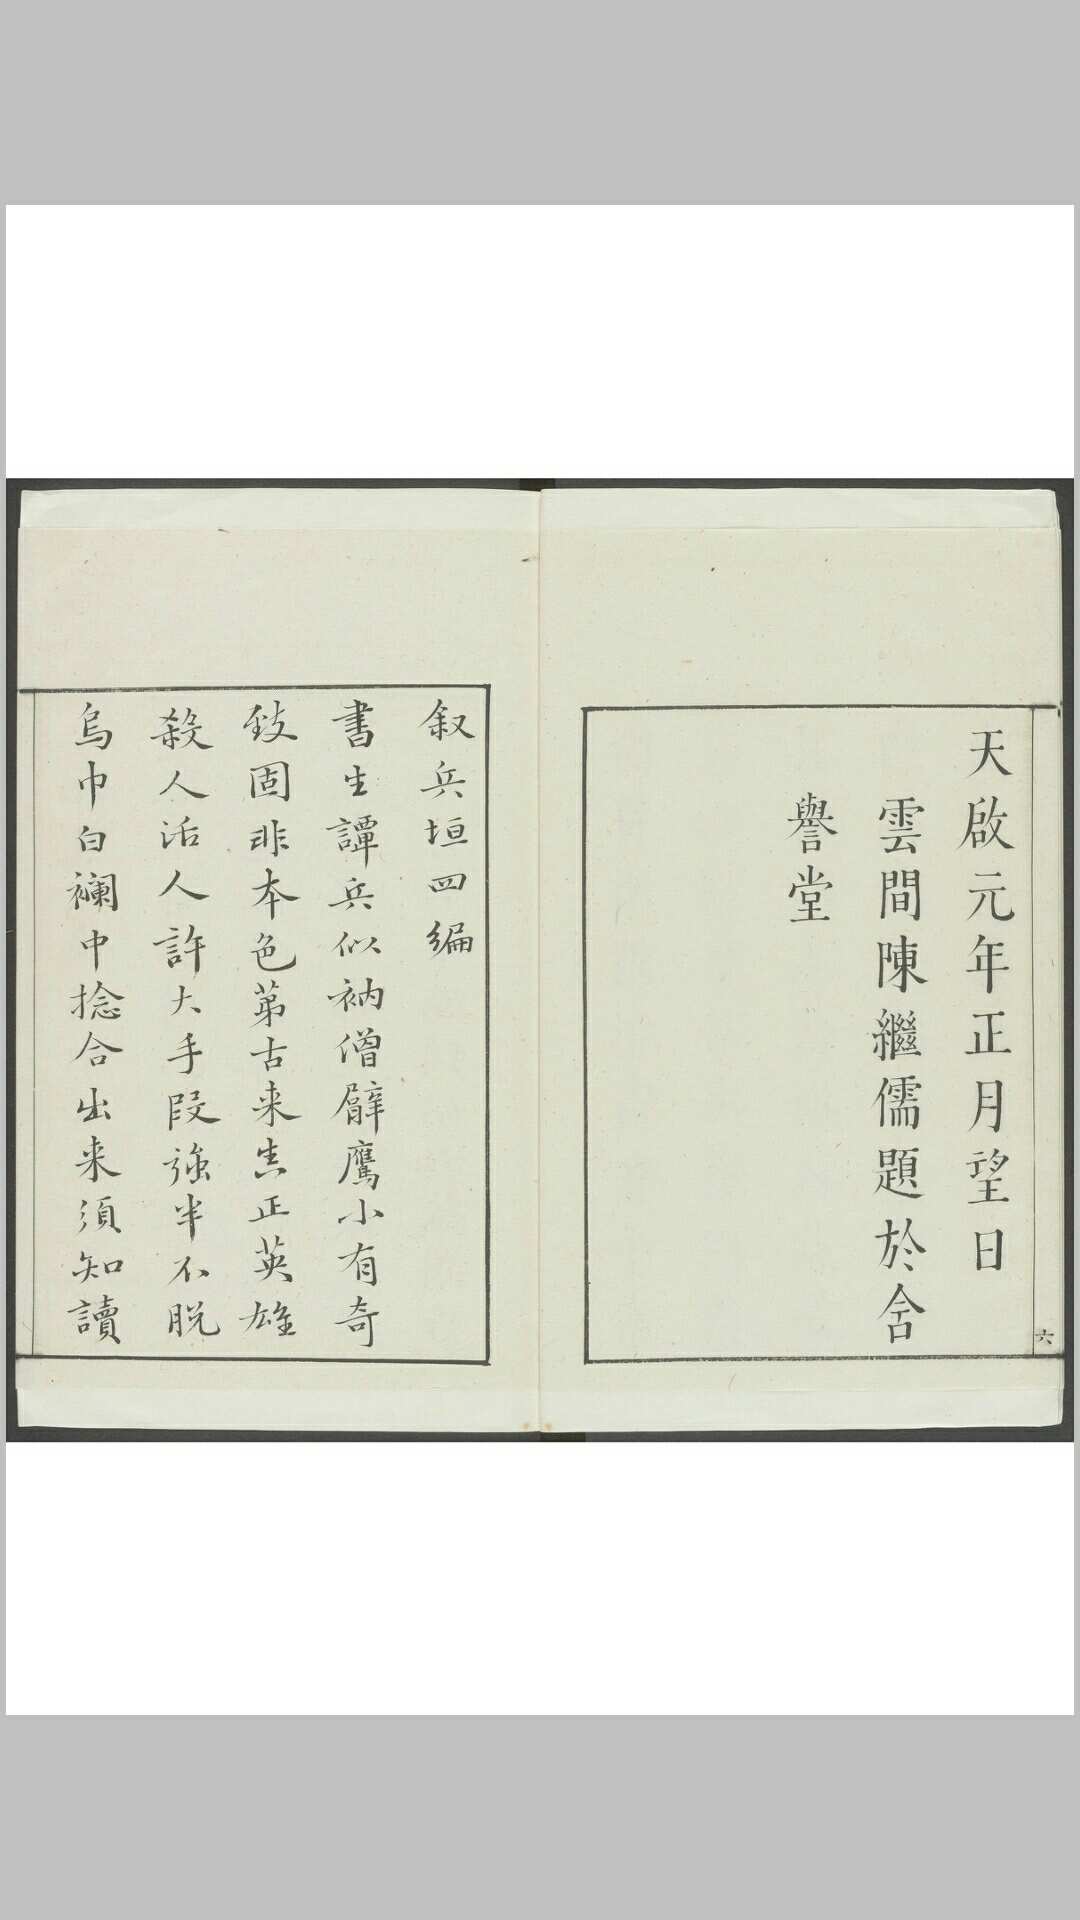 天啟元年正月望日
雲間陳繼儒題於含
譽堂
六
叙兵垣四編
書生譚兵似衲僧臂鷹小有奇
致固非本色苐古来真正英雄
殺人活人許大手段強半不脱
烏巾白襴中捻合出来須知讀